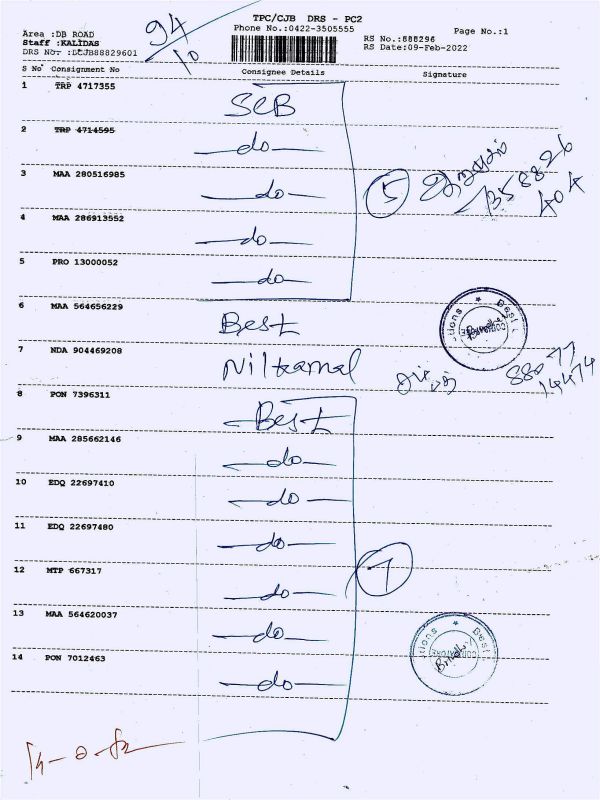 TPC/CJB DRS - PC2
Phone No.:0422-3505555
Page No.:1
Area :DB ROAD
Staff :KALIDAS
DRS No. :DCJB88829601
RS No.:888296
RS Date:09-Feb-2022
94
10
S No Consignment No Consignee Details Signature
1 TRP 4717355 SCB
2 TRP 4714595 -do-
3 MAA 280516985 -do-
4 MAA 286913552 -do-
5 PRO 13000052 -do-
5
6 MAA 564656229 Best
7 NDA 904469208 Nilkamal
8 PON 7396311 Best
9 MAA 285662146 -do-
10 EDQ 22697410 -do-
11 EDQ 22697480 -do-
12 MTP 667317 -do-
7
13 MAA 564620037 -do-
14 PON 7012463 -do-